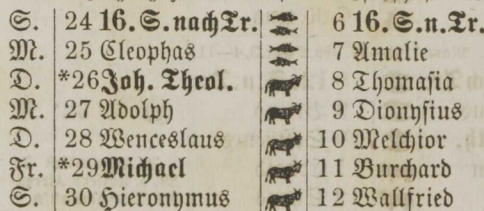 S. 24 16. S. nach Tr. 6 16. S. n. Tr.
M. 25 Cleophas 7 Amalie
D. *26 Joh. Theol. 8 Thomasia
M. 27 Adolph 9 Dionysius
D. 28 Wenceslaus 10 Melchior
Fr. *29 Michael 11 Burchard
S. 30 Hieronymus 12 Wallfried